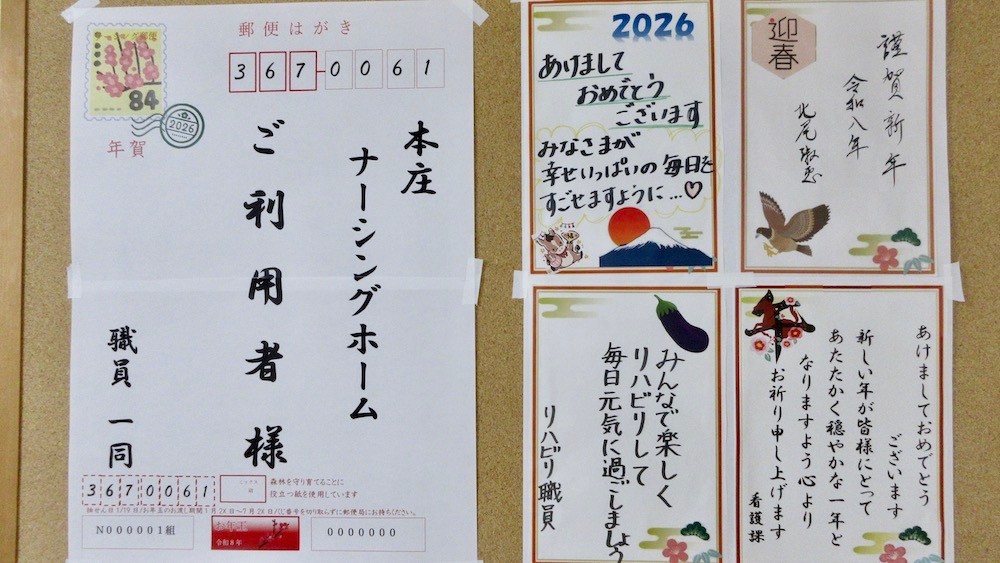 郵便はがき
モーニング郵便
84
2026
年賀
367-0061
本庄
ナーシングホーム
ご利用者様
職員一同
3670061
森林を守り育てることに
役立つ紙を使用しています
N000001組
お年玉
令和8年
0000000
2026
あけまして
おめでとう
ございます
みなさまが
幸せいっぱいの毎日を
すごせますように…♡
迎春
謹賀新年
令和八年
みんなで楽しく
リハビリして
毎日元気に過ごしましょう
リハビリ職員
あけましておめでとう
ございます
新しい年が皆様にとって
あたたかく穏やかな一年と
なりますよう心より
お祈り申し上げます
看護課